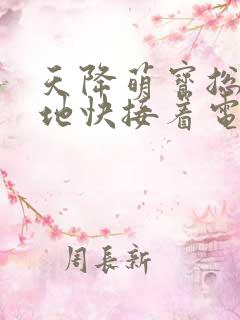 天降萌宝总
地快接着电
周长新